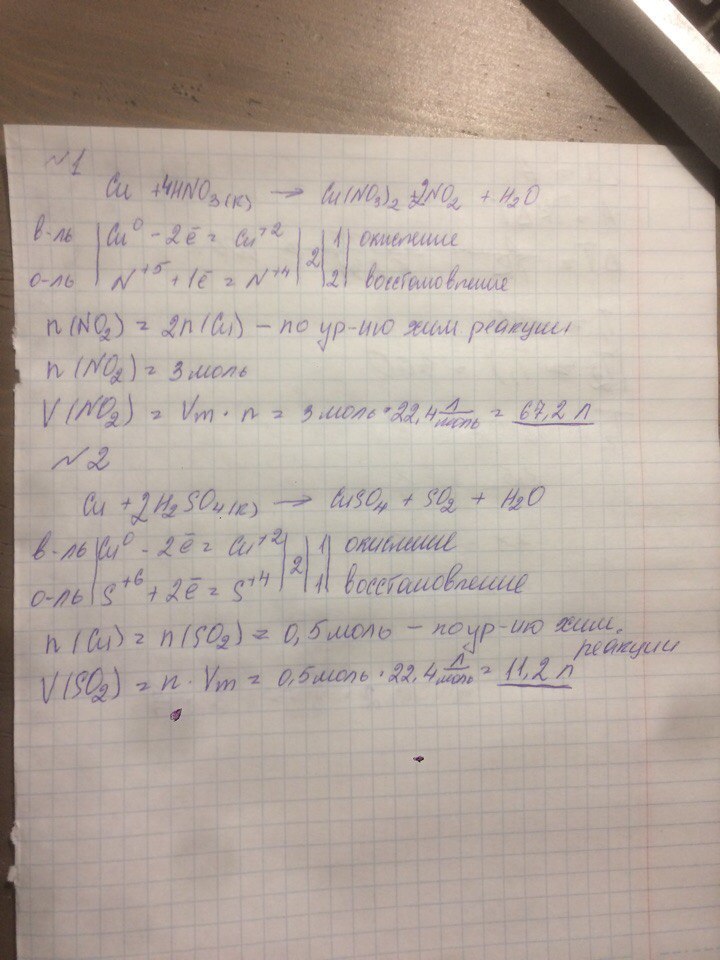 №1
Cu + 4HNO₃(к) → Cu(NO₃)₂ + 2NO₂ + H₂O
в-ль | Cu⁰ - 2ē = Cu⁺² | 2 | 1 | окисление
о-ль | N⁺⁵ + 1ē = N⁺⁴ | 2 | восстановление
n(NO₂) = 2n(Cu) – по ур-ию хим реакции
n(NO₂) = 3 моль
V(NO₂) = Vm · n = 3 моль · 22,4 л/моль = 67,2 л
№2
Cu + 2H₂SO₄(к) → CuSO₄ + SO₂ + H₂O
в-ль | Cu⁰ - 2ē = Cu⁺² | 2 | 1 | окисление
о-ль | S⁺⁶ + 2ē = S⁺⁴ | 1 | восстановление
n(Cu) = n(SO₂) = 0,5 моль – по ур-ию хим. реакции
V(SO₂) = n · Vm = 0,5 моль · 22,4 л/моль = 11,2 л